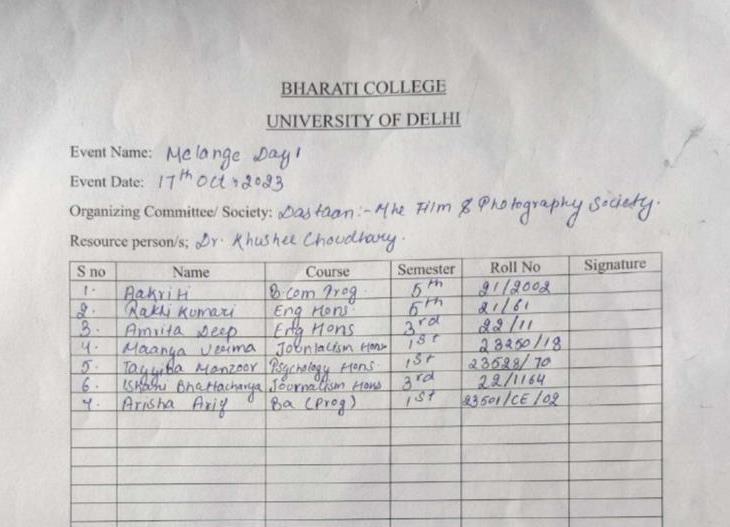 BHARATI COLLEGE
UNIVERSITY OF DELHI
Event Name: Melange Day 1
Event Date: 17th Oct, 2023
Organizing Committee/ Society: Dastaan:- The Film & Photography Society.
Resource person/s; Dr. Khushee Choudhary.
S no Name Course Semester Roll No Signature
1. Aakriti B.com Prog. 5th 21/2002
2. Rakhi Kumari Eng Hons. 5th 21/61
3. Amrita Deep Eng Hons 3rd 22/11
4. Maanya Verma Journlaism Hons 1st 23250/18
5. Tayyiba Manzoor Psychology Hons. 1st 23528/70
6. Ishani Bhattacharya Journalism Hons 3rd 22/1164
7. Arisha Arif Ba (Prog) 1st 23501/CE/02